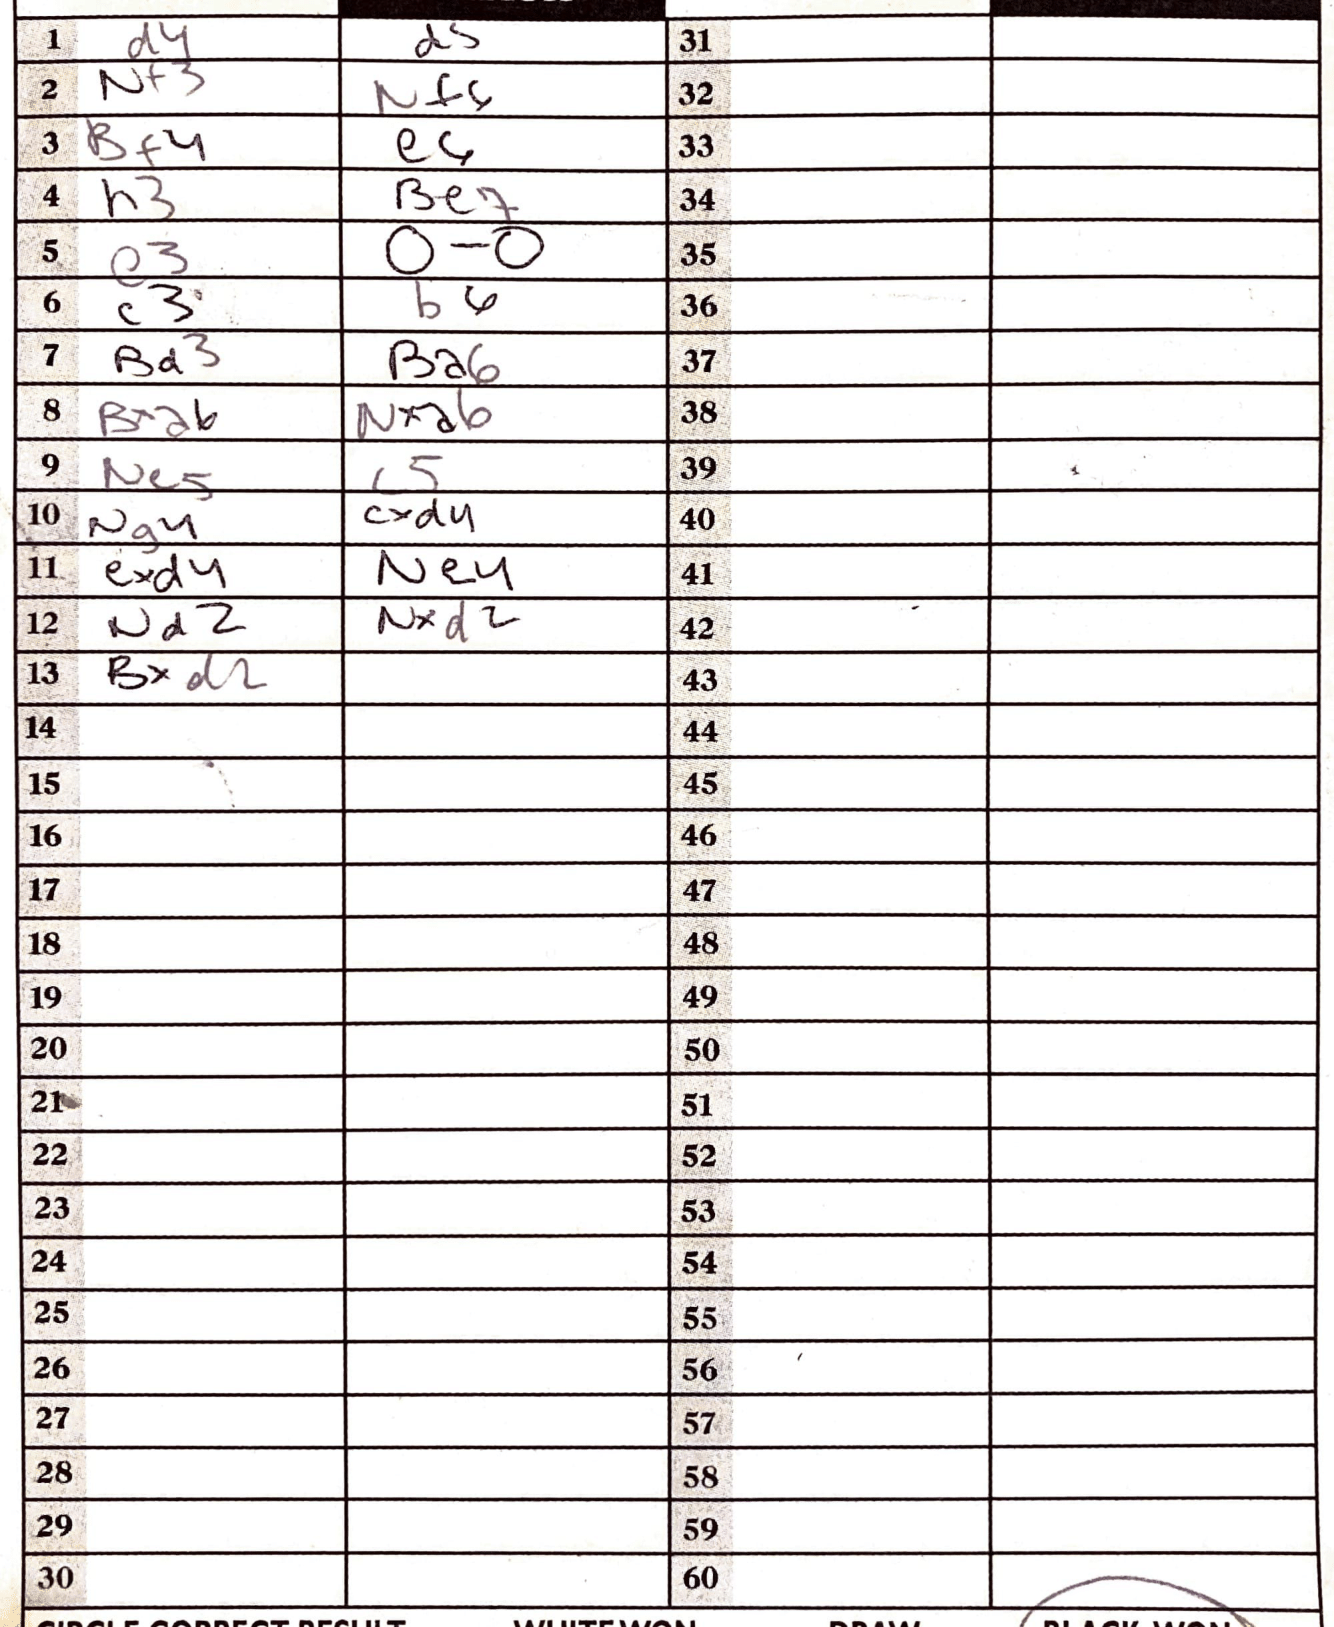 1 d4 d5 31
2 Nf3 Nf6 32
3 Bf4 e6 33
4 h3 Be7 34
5 e3 O-O 35
6 c3 b6 36
7 Bd3 Ba6 37
8 Bxa6 Nxa6 38
9 Ne5 c5 39
10 Ng4 cxd4 40
11 exd4 Ne4 41
12 Nd2 Nxd2 42
13 Bxd2 43
14 44
15 45
16 46
17 47
18 48
19 49
20 50
21 51
22 52
23 53
24 54
25 55
26 56
27 57
28 58
29 59
30 60
CIRCLE CORRECT RESULT WHITE WON DRAW BLACK WON